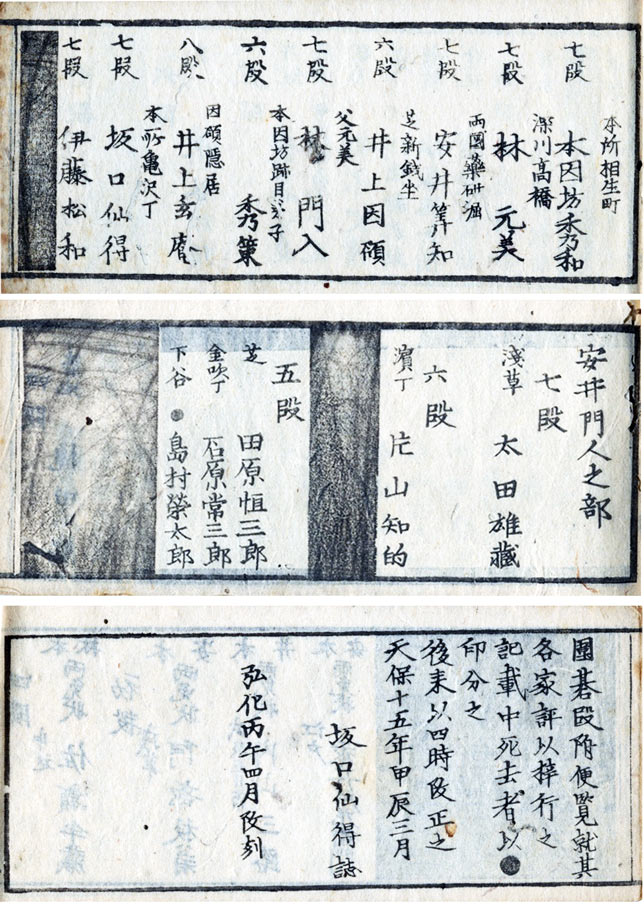 本所相生町
七段 本因坊秀和
深川高橋
七段 林 元美
両國薬研堀
七段 安井筭知
芝新錢坐
六段 井上因碩
父元美
七段 林 門入
本因坊跡目 子
六段 秀策
因碩隠居
八段 井上玄庵
本所亀沢丁
七段 坂口仙得
七段 伊藤松和
安井門人之部
七段
淺草 太田雄藏
六段
濱丁 片山知的
五段
芝 田原恒三郎
金吹丁 石原常三郎
下谷 ● 島村榮太郎
圍碁段附便覧就其
各家評以梓行之
記載中死去者以●
印分之
後来以四時改正之
天保十五年甲辰三月
坂口仙得誌
弘化丙午四月改刻